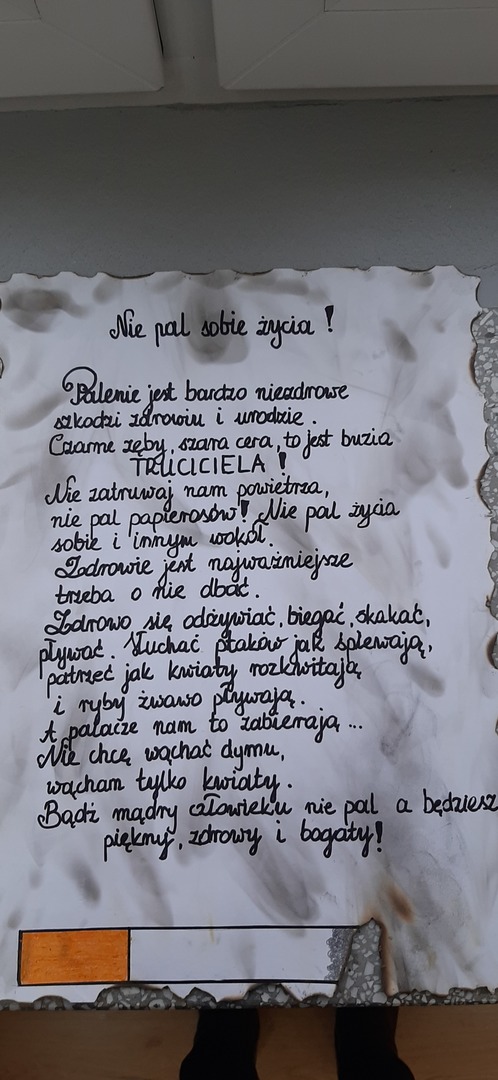 Nie pal sobie życia !
Palenie jest bardzo niezdrowe
szkodzi zdrowiu i urodzie .
Czarne zęby, szara cera, to jest buzia
TRUCICIELA !
Nie zatruwaj nam powietrza,
nie pal papierosów! Nie pal życia
sobie i innym wokół.
Zdrowie jest najważniejsze
trzeba o nie dbać .
Zdrowo się odżywiać, biegać, skakać,
pływać. Słuchać ptaków jak śpiewają,
patrzeć jak kwiaty rozkwitają
i ryby żwawo pływają.
A palacze nam to zabierają ...
Nie chcę wąchać dymu,
wącham tylko kwiaty .
Bądź mądry człowieku nie pal a będziesz
piękny, zdrowy i bogaty!